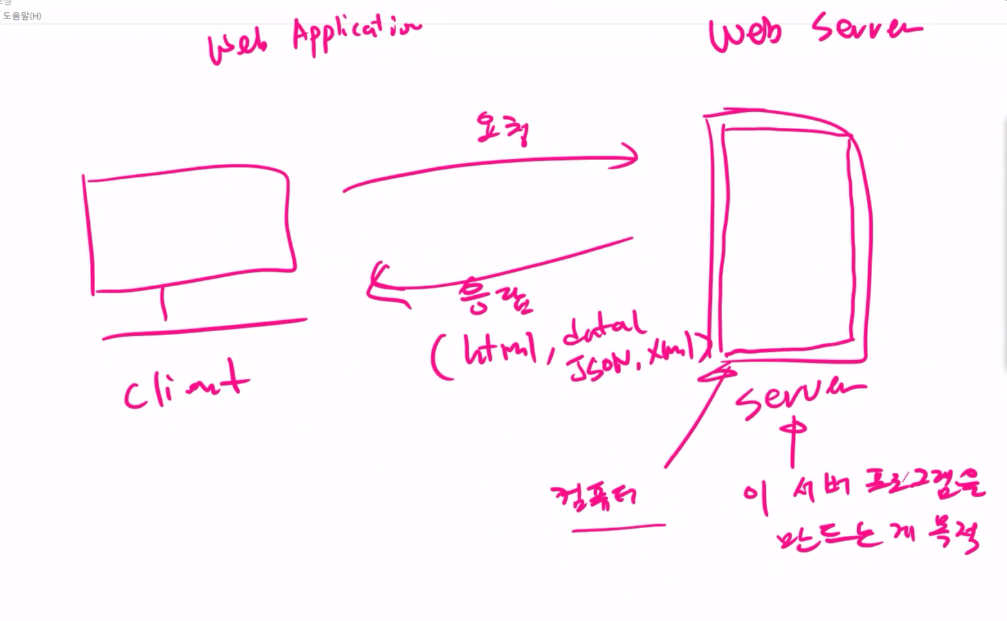 도움말(H)
Web Application
Web Server
요청
응답
(html, data(
JSON, xml)
Client
Server
컴퓨터
이 서버 프로그램을
만드는게 목적